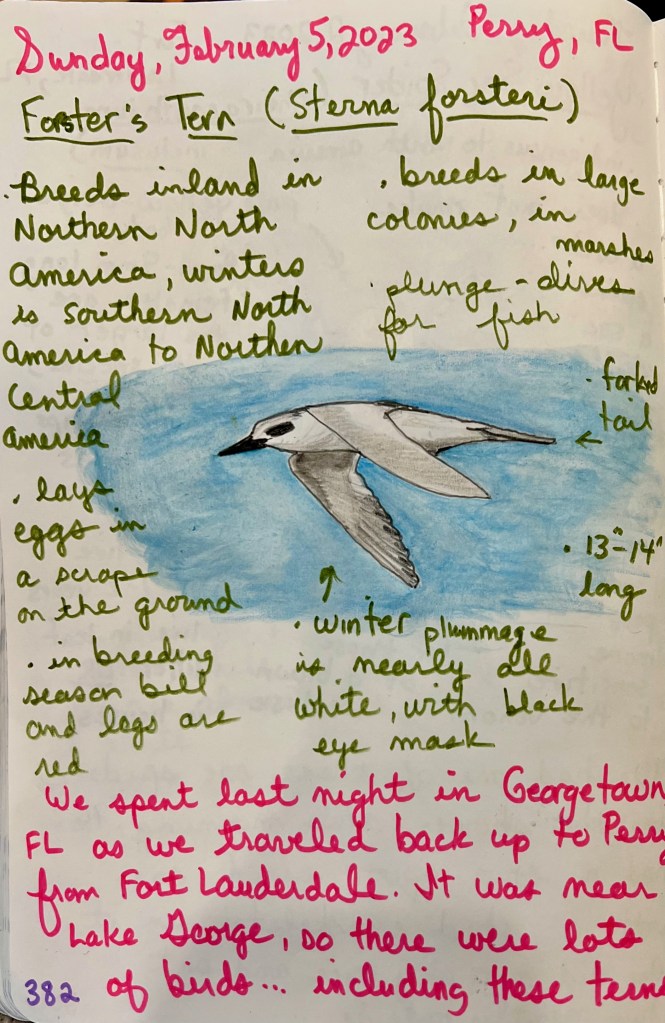 Sunday, February 5, 2023 Perry, FL
Forster's Tern (Sterna forsteri)
. Breeds inland in
Northern North
America, winters
is southern North
America to Northen
Central
America
. lays
eggs in
a scrape
on the ground
. in breeding
season bill
and legs are
red
. breeds in large
colonies, in
marshes
. plunge-dives
for fish
. forked
tail
←
. 13"-14"
long
↑
. winter plummage
is nearly all
white, with black
eye mask
We spent last night in Georgetown
FL as we traveled back up to Perry
from Fort Lauderdale. It was near
Lake George, so there were lots
of birds... including these terns
382